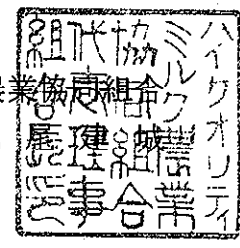 ハイクオリティ
ミルク農業
協同組合
代表理事
組合長印
業協同組合